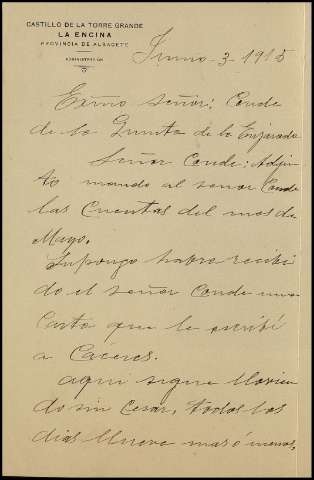 CASTILLO DE LA TORRE GRANDE
LA ENCINA
PROVINCIA DE ALBACETE
ADMINISTRACION
Junio-3-1915
Exmo señor: Conde
de la Quinta de la Enjarada
Señor Conde: Adjun
to mando al señor Conde
las Cuentas del mes de
Mayo.
Supongo habra recibi
do el señor Conde una
Carta que le escribí
a Cáceres.
aqui sigue llovien
do sin Cesar, todos los
dias llueve mas ó menos,